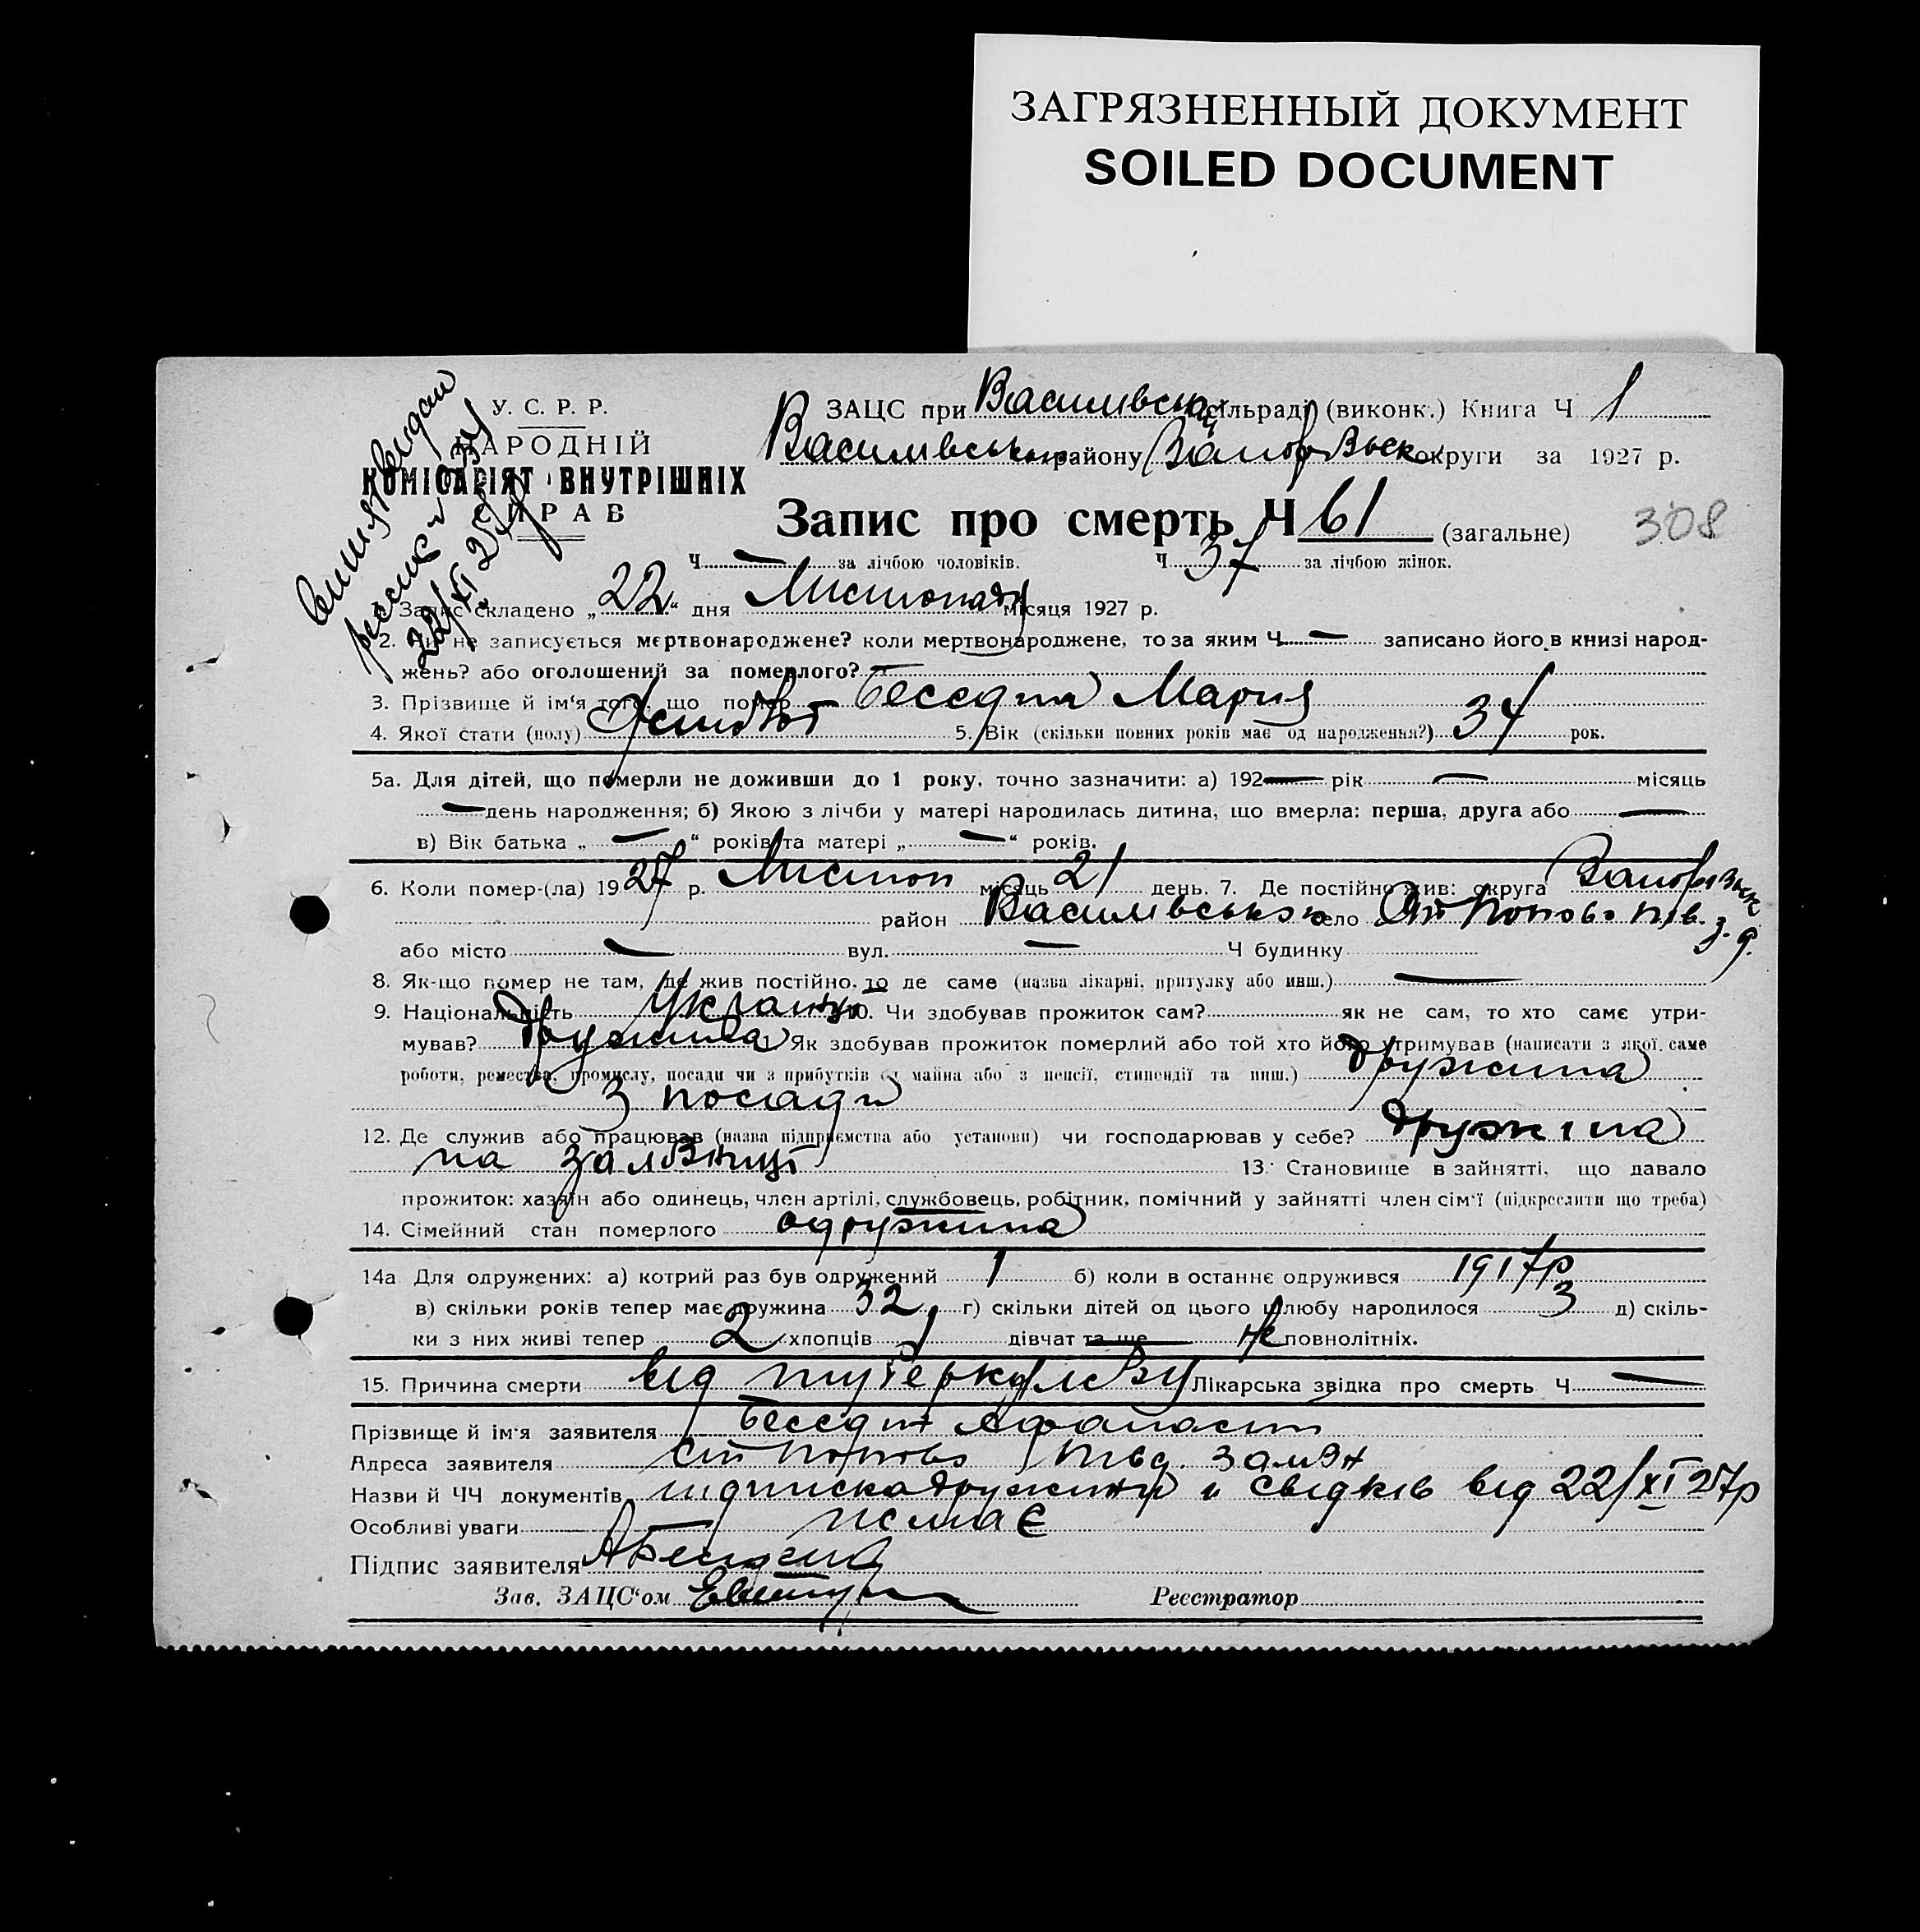 ЗАГРЯЗНЕННЫЙ ДОКУМЕНТ
SOILED DOCUMENT
У. С. Р. Р.
НАРОДНІЙ
КОМІСАРІЯТ ВНУТРІШНІХ
СПРАВ
ЗАЦС при Василівській сільраді (виконк.) Книга Ч 1
Василівського району Запорізьк округи за 1927 р.
Запис про смерть Ч 61 (загальне)
308
Ч — за лічбою чоловіків. Ч 37 за лічбою жінок.
1. Запис складено „22“ дня Листопаду місяця 1927 р.
2. Чи не записується мертвонароджене? коли мертвонароджене, то за яким Ч — записано його в книзі народ-
жень? або оголошений за померлого? —
3. Прізвище й ім'я того, що помер Беседин Мария
4. Якої стати (полу) 5. Вік (скільки повних років має од народження?) 34 рок.
5а. Для дітей, що померли не доживши до 1 року, точно зазначити: а) 192— рік — місяць
— день народження; б) Якою з лічби у матері народилась дитина, що вмерла: перша, друга або —
в) Вік батька „—“ років та матері „—“ років.
6. Коли помер-(ла) 1927 р. Листоп місяць 21 день. 7. Де постійно жив: округа Запорізьк
район Василівського село Ст Попово пів. з. д.
або місто — вул. — Ч будинку
8. Як-що помер не там, де жив постійно, то де саме (назва лікарні, притулку або инш.) —
9. Національність 10. Чи здобував прожиток сам? як не сам, то хто саме утри-
мував? дружина 11 Як здобував прожиток померлий або той хто його утримував (написати з якої саме
роботи, ремества, промислу, посади чи з прибутків од майна або з пенсії, стипендії та инш.) дружина
з посади
12. Де служив або працював (назва підприємства або установи) чи господарював у себе? дружина
на залізниці 13. Становище в зайнятті, що давало
прожиток: хазяїн або одинець, член артілі, службовець, робітник, помічний у зайнятті член сім'ї (підкреслити що треба)
14. Сімейний стан померлого одружина
14а Для одружених: а) котрий раз був одружений 1 б) коли в останнє одружився 1917р
в) скільки років тепер має дружина 32 г) скільки дітей од цього шлюбу народилося 3 д) скіль-
ки з них живі тепер 2 хлопців 1 дівчат та ще не повнолітніх.
15. Причина смерти від туберкульозу Лікарська звідка про смерть Ч —
Прізвище й ім'я заявителя Беседин Афанасий
Адреса заявителя ст Попово Півд. залізн
Назви й ЧЧ документів підписка дружини и свідків від 22/XI 27р
Особливі уваги немає
Підпис заявителя
Зав. ЗАЦС'ом Реєстратор